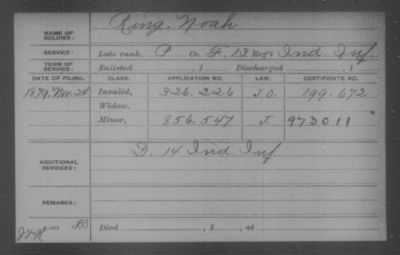 NAME OF SOLDIER: Ring, Noah
SERVICE: Late rank, P Co. F, 13 Reg't Ind. Inf.
TERM OF SERVICE: Enlisted , 1 Discharged , 1
DATE OF FILING. CLASS. APPLICATION NO. LAW. CERTIFICATE NO.
1879, Nov. 24 Invalid, 326.226 J.O. 199.672
Widow,
Minor, 856.547 J. 973011
ADDITIONAL SERVICES: D. 14 Ind. Inf.
REMARKS:
Died , 1 , at